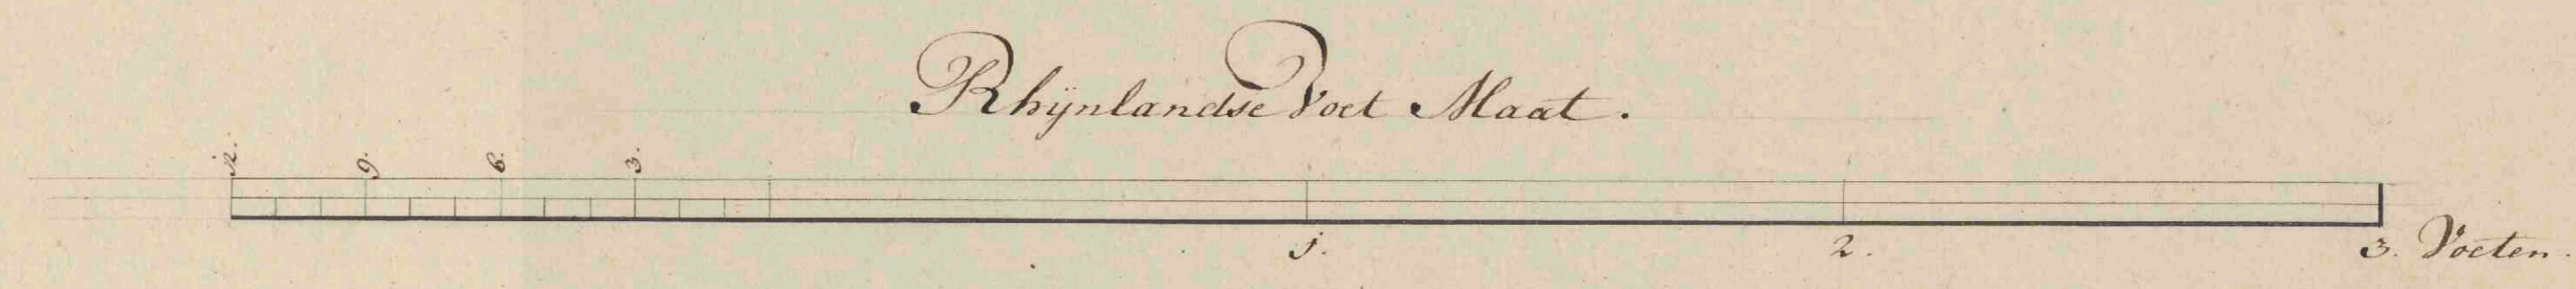 Rhÿnlandse Voet Maat.
12. 9. 6. 3.
1. 2. 3. Voeten.